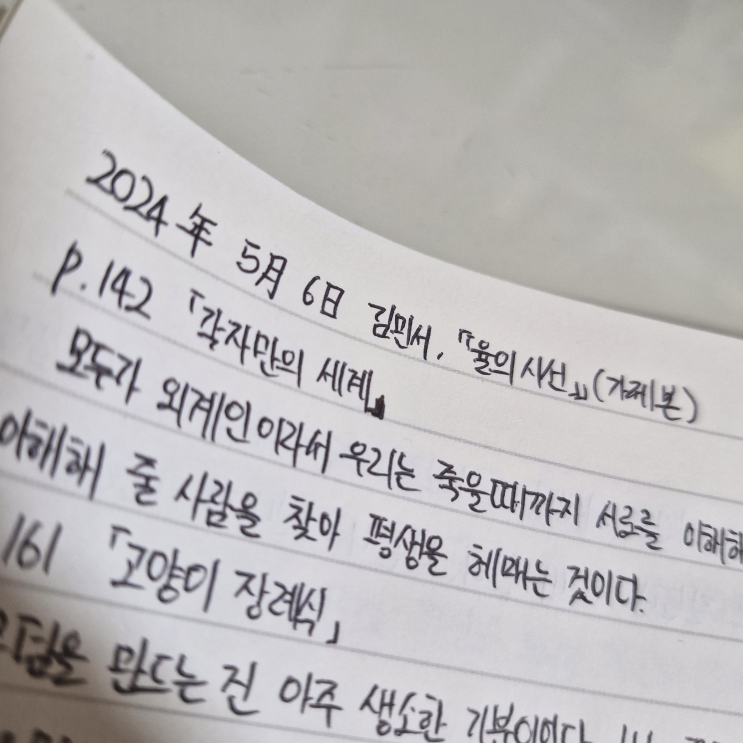 2024年 5月 6日 김민서, 『율의 시선』 (가제본)
p.142 「각자만의 세계」
모두가 외계인이라서 우리는 죽을때까지 서로를 이해해
이해해 줄 사람을 찾아 평생을 헤매는 것이다.
161 「고양이 장례식」
만드는 건 아주 생소한 기분이었다